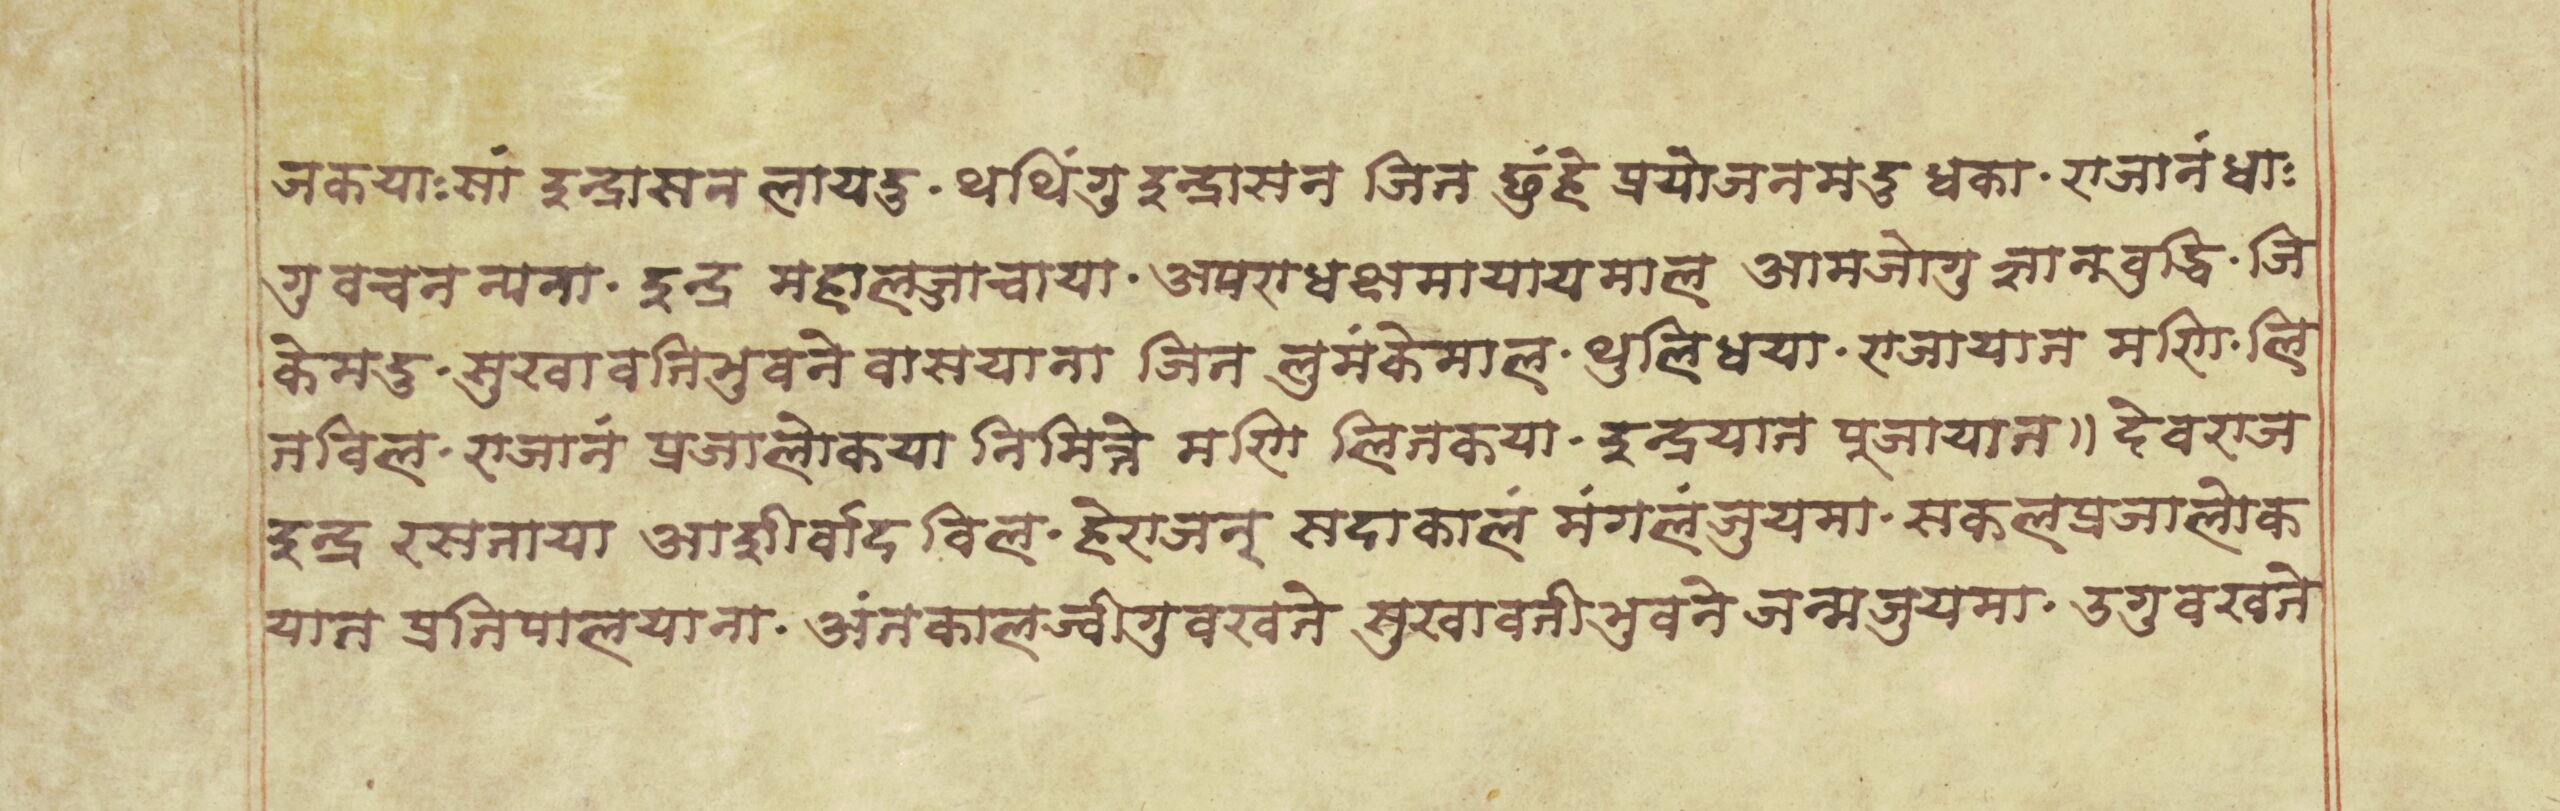 जकयाःसां इन्द्रासन लायदु · थथिंगु इन्द्रासन जित छुंहे प्रयोजनमदु धका · राजानं धाः
गु वचन न्यना · इन्द्र महालज्जाचाया · अपराधक्षमायायमाल आमजोगु ज्ञानबुद्धि · जि
केमदु · सुखावतिभुवने वासयाना जित लुमंकेमाल · थुलिधया · राजायात मणि · लि
तविल · राजानं प्रजालोकया निमित्ते मणि लितकया · इन्द्रयात पूजायात॥ देवराज
इन्द्र रसताया आशीर्वाद विल · हेराजन् सदाकालं मंगलंजुयमा · सकलप्रजालोक
यात प्रतिपालयाना · अंतकालज्वीगुवखते सुखावतीभुवने जन्मजुयमा · उगुवखते